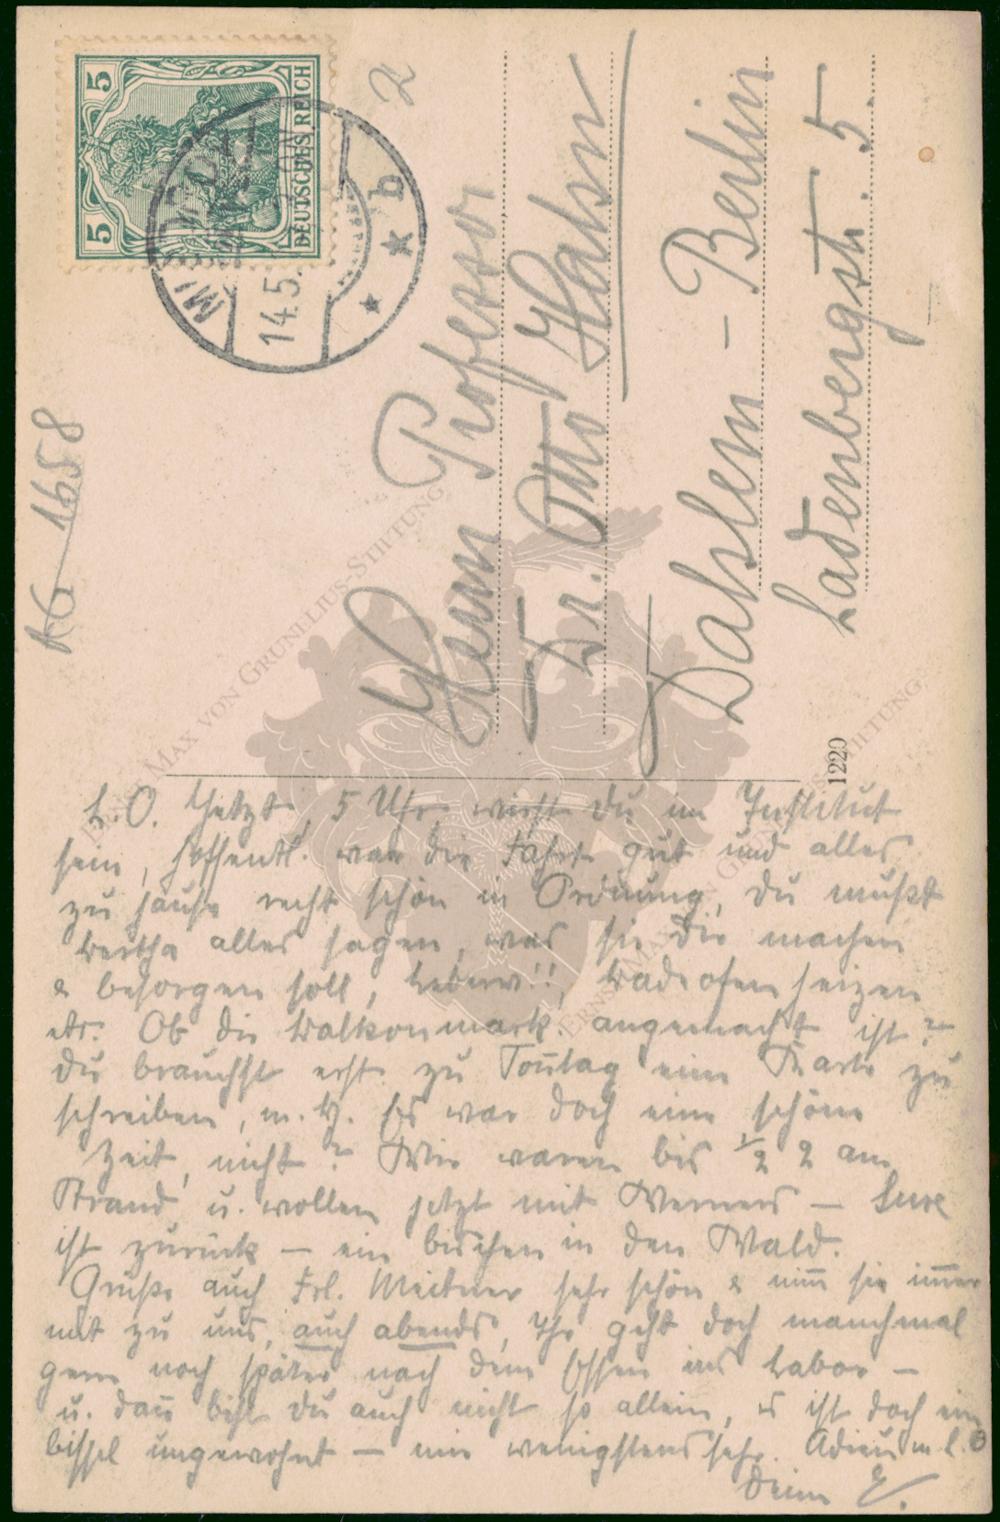 5 5
DEUTSCHES REICH
MISDROY
14.5.
b
2
KG 1658
Herrn Professor
Dr. Otto Hahn
Dahlem - Berlin
Ladenbergstr. 5.
1220
ERNST MAX VON GRUNELIUS-STIFTUNG
ERNST MAX VON GRUNELIUS-STIFTUNG
L. O. Jetzt, 5 Uhr, wirst Du im Institut
sein, hoffentl. war die Fahrt gut und alles
zu Hause recht schön in Ordnung, Du mußt
Bertha alles sagen, was sie Dir machen
& besorgen soll, Badeofen heizen
etc. Ob die angemacht ist?
Du brauchst erst zu Sonntag eine Karte zu
schreiben, m. H. Es war doch eine schöne
Zeit, nicht? Wir waren bis 1/2 2 am
Strand u. wollen jetzt mit Werners —
ist zurück — ein bischen in den Wald.
Grüße auch Frl. Meitner sehr schön & nim̄ sie im̄er
mit zu uns, auch abends, Ihr geht doch manchmal
gern noch später nach dem Essen ins Labor —
u. dan̄ bist Du auch nicht so allein, es ist doch ein
bissel ungewohnt — mir wenigstens sehr. Adieu m. l. O
Deine E.